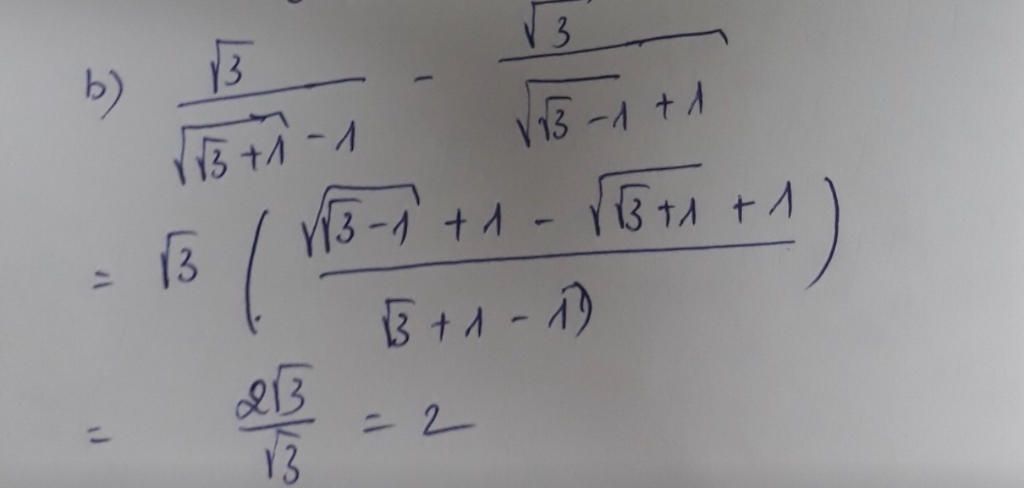 b) \frac{\sqrt{3}}{\sqrt{\sqrt{3}+1}-1} - \frac{\sqrt{3}}{\sqrt{\sqrt{3}-1}+1}
= \sqrt{3} \left( \frac{\sqrt{\sqrt{3}-1}+1-\sqrt{\sqrt{3}+1}+1}{\sqrt{3}+1-1)} \right)
= \frac{2\sqrt{3}}{\sqrt{3}} = 2